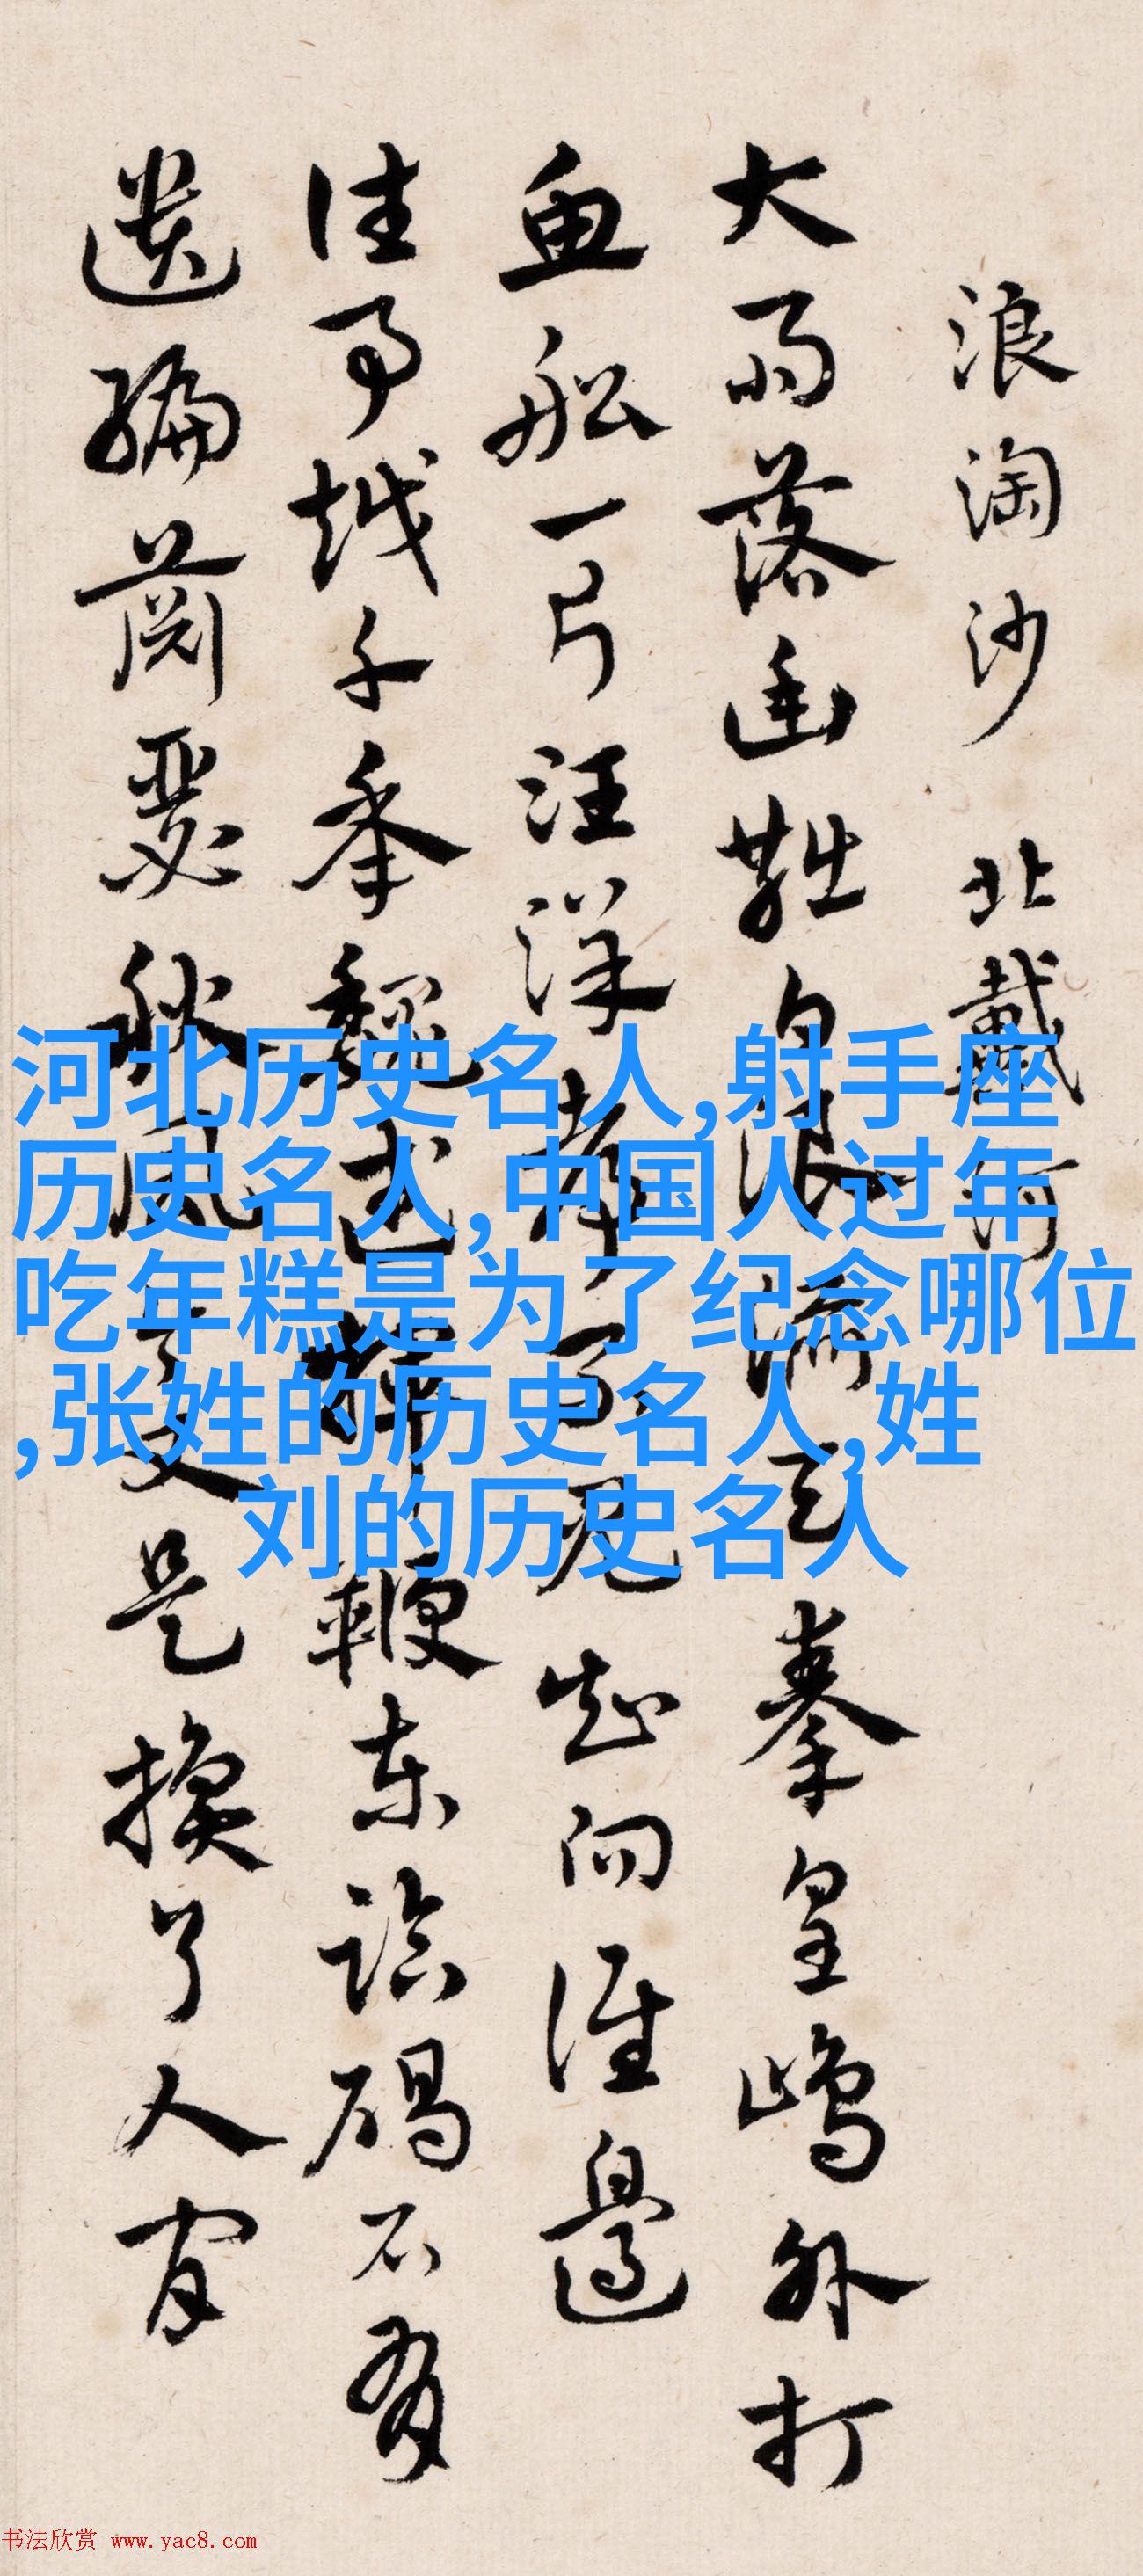 浪淘沙 北戴河
大雨落幽燕白浪滔天秦皇島外打
魚船一片汪洋都不見知向誰邊
往事越千年魏武揮鞭東臨碣石有
遺編蕭瑟秋風今又是換了人間
河北历史名人,射手座
历史名人,中国人过年
吃年糕是为了纪念哪位
,张姓的历史名人,姓
刘的历史名人
书法欣赏 www.yac8.com